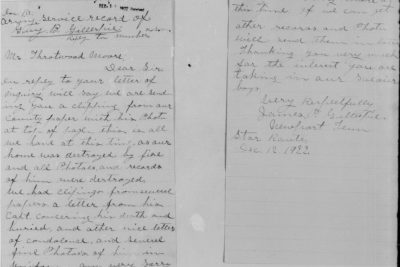 Service record of
Guy B Gillespie
Refer to number
Mr. Trotwood Moore
Dear Sir
In reply to your letter of
inquiry will say we are send
ing you a clipping from our
County paper with his Photo
at top of page. this is all
we have at this time, as our
home was destroyed by fire
and all Photoes, and records
of him were destroyed,
We had clipings from several
papers. a letter from his
Capt. concerning his death and
buried, and other nice letter
of condolance, and several
fine Photoes of him in
very sorry
this time if we can get
other records and Photo
will send them in later
Thanking you very much
for the interest you are
taking in our Soldier
boys.
Very Respectfully
James P. Gillespie
Newport Tenn
Star Route
Dec 12 1922